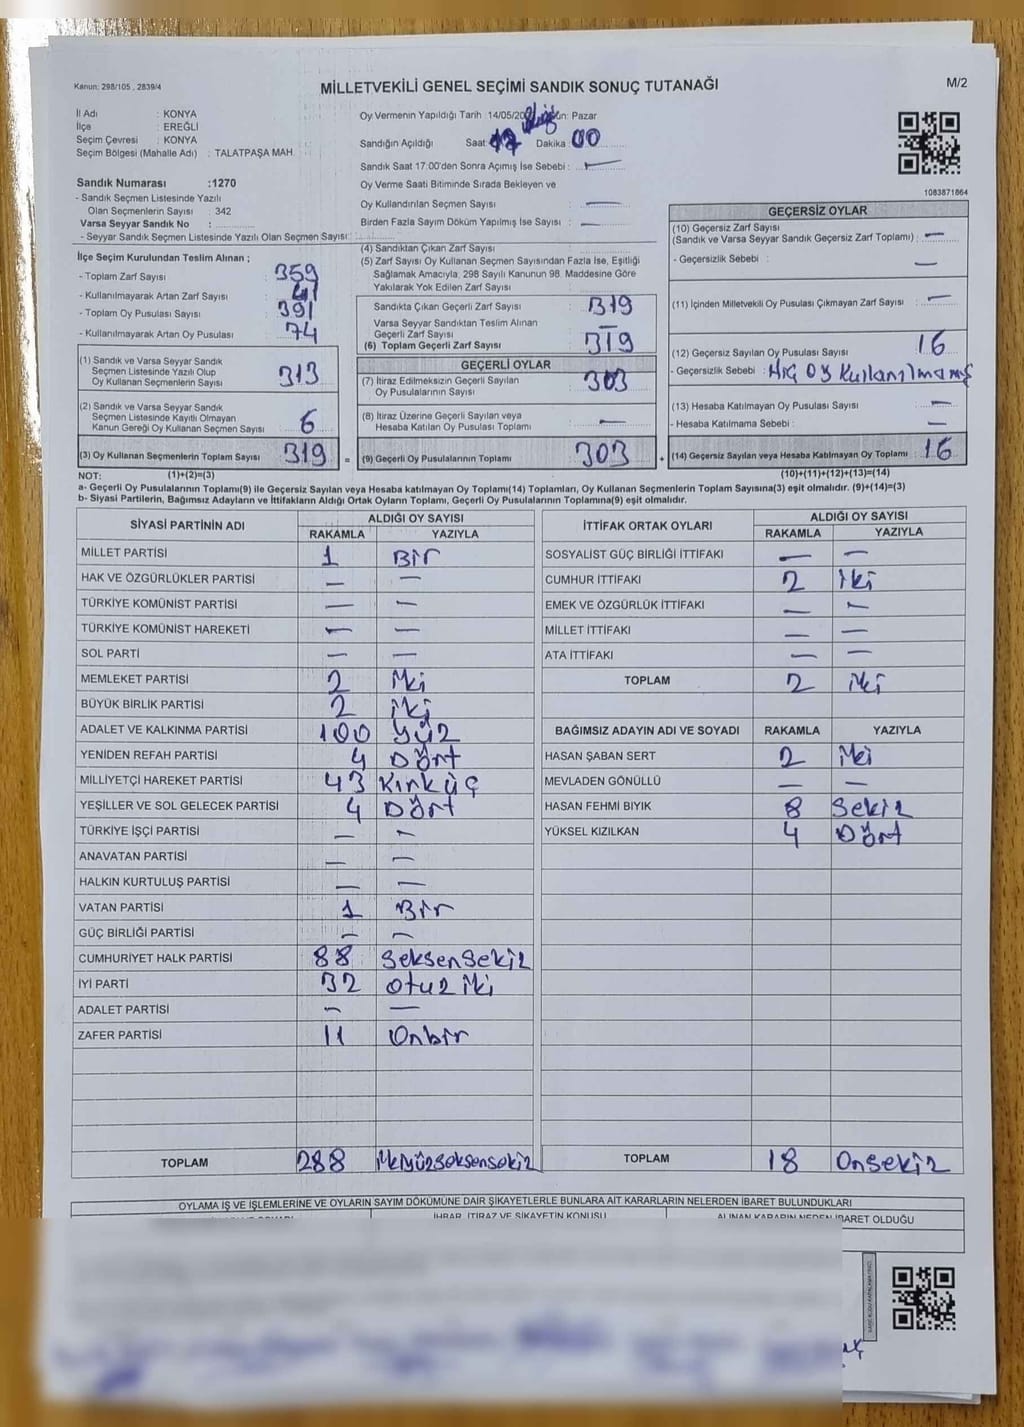 Kanun: 298/105 , 2839/4
MİLLETVEKİLİ GENEL SEÇİMİ SANDIK SONUÇ TUTANAĞI
M/2
İl Adı : KONYA
İlçe : EREĞLİ
Seçim Çevresi : KONYA
Seçim Bölgesi (Mahalle Adı) : TALATPAŞA MAH.
Sandık Numarası :1270
- Sandık Seçmen Listesinde Yazılı
Olan Seçmenlerin Sayısı : 342
Varsa Seyyar Sandık No :
- Seyyar Sandık Seçmen Listesinde Yazılı Olan Seçmen Sayısı:
Oy Vermenin Yapıldığı Tarih :14/05/20 Gün: Pazar
Sandığın Açıldığı Saat: 17 Dakika: 00
Sandık Saat 17:00'den Sonra Açımış İse Sebebi : —
Oy Verme Saati Bitiminde Sırada Bekleyen ve
Oy Kullandırılan Seçmen Sayısı : —
Birden Fazla Sayım Döküm Yapılmış İse Sayısı : —
1083871864
İlçe Seçim Kurulundan Teslim Alınan ;
- Toplam Zarf Sayısı : 359
- Kullanılmayarak Artan Zarf Sayısı :
- Toplam Oy Pusulası Sayısı : 391
- Kullanılmayarak Artan Oy Pusulası : 74
(1) Sandık ve Varsa Seyyar Sandık
Seçmen Listesinde Yazılı Olup
Oy Kullanan Seçmenlerin Sayısı : 313
(2) Sandık ve Varsa Seyyar Sandık
Seçmen Listesinde Kayıtlı Olmayan
Kanun Gereği Oy Kullanan Seçmen Sayısı : 6
(3) Oy Kullanan Seçmenlerin Toplam Sayısı : 319 =
(4) Sandıktan Çıkan Zarf Sayısı :
(5) Zarf Sayısı Oy Kullanan Seçmen Sayısından Fazla İse, Eşitliği
Sağlamak Amacıyla, 298 Sayılı Kanunun 98. Maddesine Göre
Yakılarak Yok Edilen Zarf Sayısı :
Sandıkta Çıkan Geçerli Zarf Sayısı : 319
Varsa Seyyar Sandıktan Teslim Alınan
Geçerli Zarf Sayısı : —
(6) Toplam Geçerli Zarf Sayısı : 319
GEÇERLİ OYLAR
(7) İtiraz Edilmeksizin Geçerli Sayılan
Oy Pusulalarının Sayısı : 303
(8) İtiraz Üzerine Geçerli Sayılan veya
Hesaba Katılan Oy Pusulası Toplamı : —
(9) Geçerli Oy Pusulalarının Toplamı : 303 +
GEÇERSİZ OYLAR
(10) Geçersiz Zarf Sayısı
(Sandık ve Varsa Seyyar Sandık Geçersiz Zarf Toplamı) : —
- Geçersizlik Sebebi : —
(11) İçinden Milletvekili Oy Pusulası Çıkmayan Zarf Sayısı : —
(12) Geçersiz Sayılan Oy Pusulası Sayısı : 16
- Geçersizlik Sebebi : Hiç oy kullanılmamış
(13) Hesaba Katılmayan Oy Pusulası Sayısı : —
- Hesaba Katılmama Sebebi : —
(14) Geçersiz Sayılan veya Hesaba Katılmayan Oy Toplamı : 16
NOT: (1)+(2)=(3) (10)+(11)+(12)+(13)=(14)
a- Geçerli Oy Pusulalarının Toplamı(9) ile Geçersiz Sayılan veya Hesaba katılmayan Oy Toplamı(14) Toplamları, Oy Kullanan Seçmenlerin Toplam Sayısına(3) eşit olmalıdır. (9)+(14)=(3)
b- Siyasi Partilerin, Bağımsız Adayların ve İttifakların Aldığı Ortak Oyların Toplamı, Geçerli Oy Pusulalarının Toplamına(9) eşit olmalıdır.
SİYASİ PARTİNİN ADI ALDIĞI OY SAYISI
RAKAMLA YAZIYLA
MİLLET PARTİSİ 1 Bir
HAK VE ÖZGÜRLÜKLER PARTİSİ — —
TÜRKİYE KOMÜNİST PARTİSİ — —
TÜRKİYE KOMÜNİST HAREKETİ — —
SOL PARTİ — —
MEMLEKET PARTİSİ 2 iki
BÜYÜK BİRLİK PARTİSİ 2 iki
ADALET VE KALKINMA PARTİSİ 100 yüz
YENİDEN REFAH PARTİSİ 4 Dört
MİLLİYETÇİ HAREKET PARTİSİ 43 Kırküç
YEŞİLLER VE SOL GELECEK PARTİSİ 4 Dört
TÜRKİYE İŞÇİ PARTİSİ — —
ANAVATAN PARTİSİ — —
HALKIN KURTULUŞ PARTİSİ — —
VATAN PARTİSİ 1 Bir
GÜÇ BİRLİĞİ PARTİSİ — —
CUMHURİYET HALK PARTİSİ 88 seksensekiz
İYİ PARTİ 32 otuz iki
ADALET PARTİSİ — —
ZAFER PARTİSİ 11 Onbir
TOPLAM 288 ikiyüzseksensekiz
İTTİFAK ORTAK OYLARI ALDIĞI OY SAYISI
RAKAMLA YAZIYLA
SOSYALİST GÜÇ BİRLİĞİ İTTİFAKI — —
CUMHUR İTTİFAKI 2 iki
EMEK VE ÖZGÜRLÜK İTTİFAKI — —
MİLLET İTTİFAKI — —
ATA İTTİFAKI — —
TOPLAM 2 iki
BAĞIMSIZ ADAYIN ADI VE SOYADI RAKAMLA YAZIYLA
HASAN ŞABAN SERT 2 iki
MEVLADEN GÖNÜLLÜ — —
HASAN FEHMİ BIYIK 8 Sekiz
YÜKSEL KIZILKAN 4 Dört
TOPLAM 18 Onsekiz
OYLAMA İŞ VE İŞLEMLERİNE VE OYLARIN SAYIM DÖKÜMÜNE DAİR ŞİKAYETLERLE BUNLARA AİT KARARLARIN NELERDEN İBARET BULUNDUKLARI
İHBAR, İTİRAZ VE ŞİKAYETİN KONUSU ALINAN KARARIN NEDEN İBARET OLDUĞU